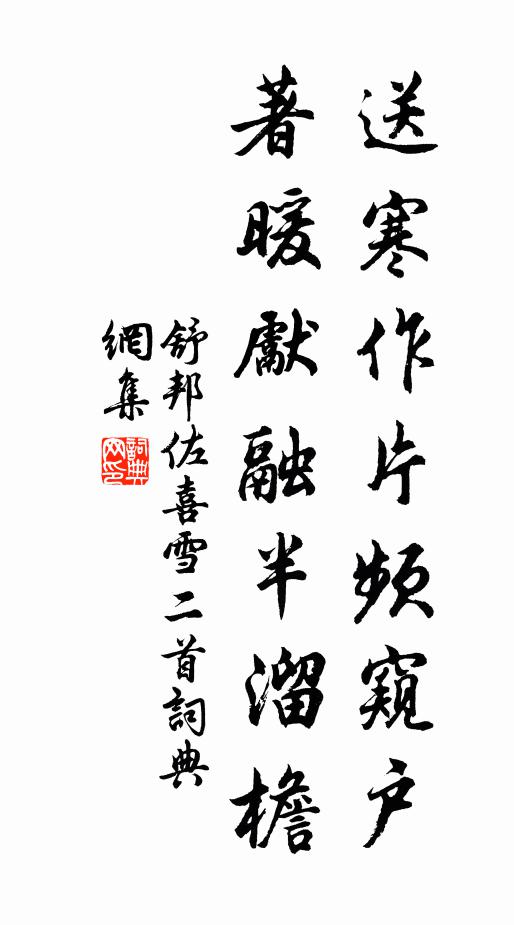 送寒作片頻窺户
著暖獻融半溜檐
舒邦佐喜雪二首詞典
網集
詞典网印